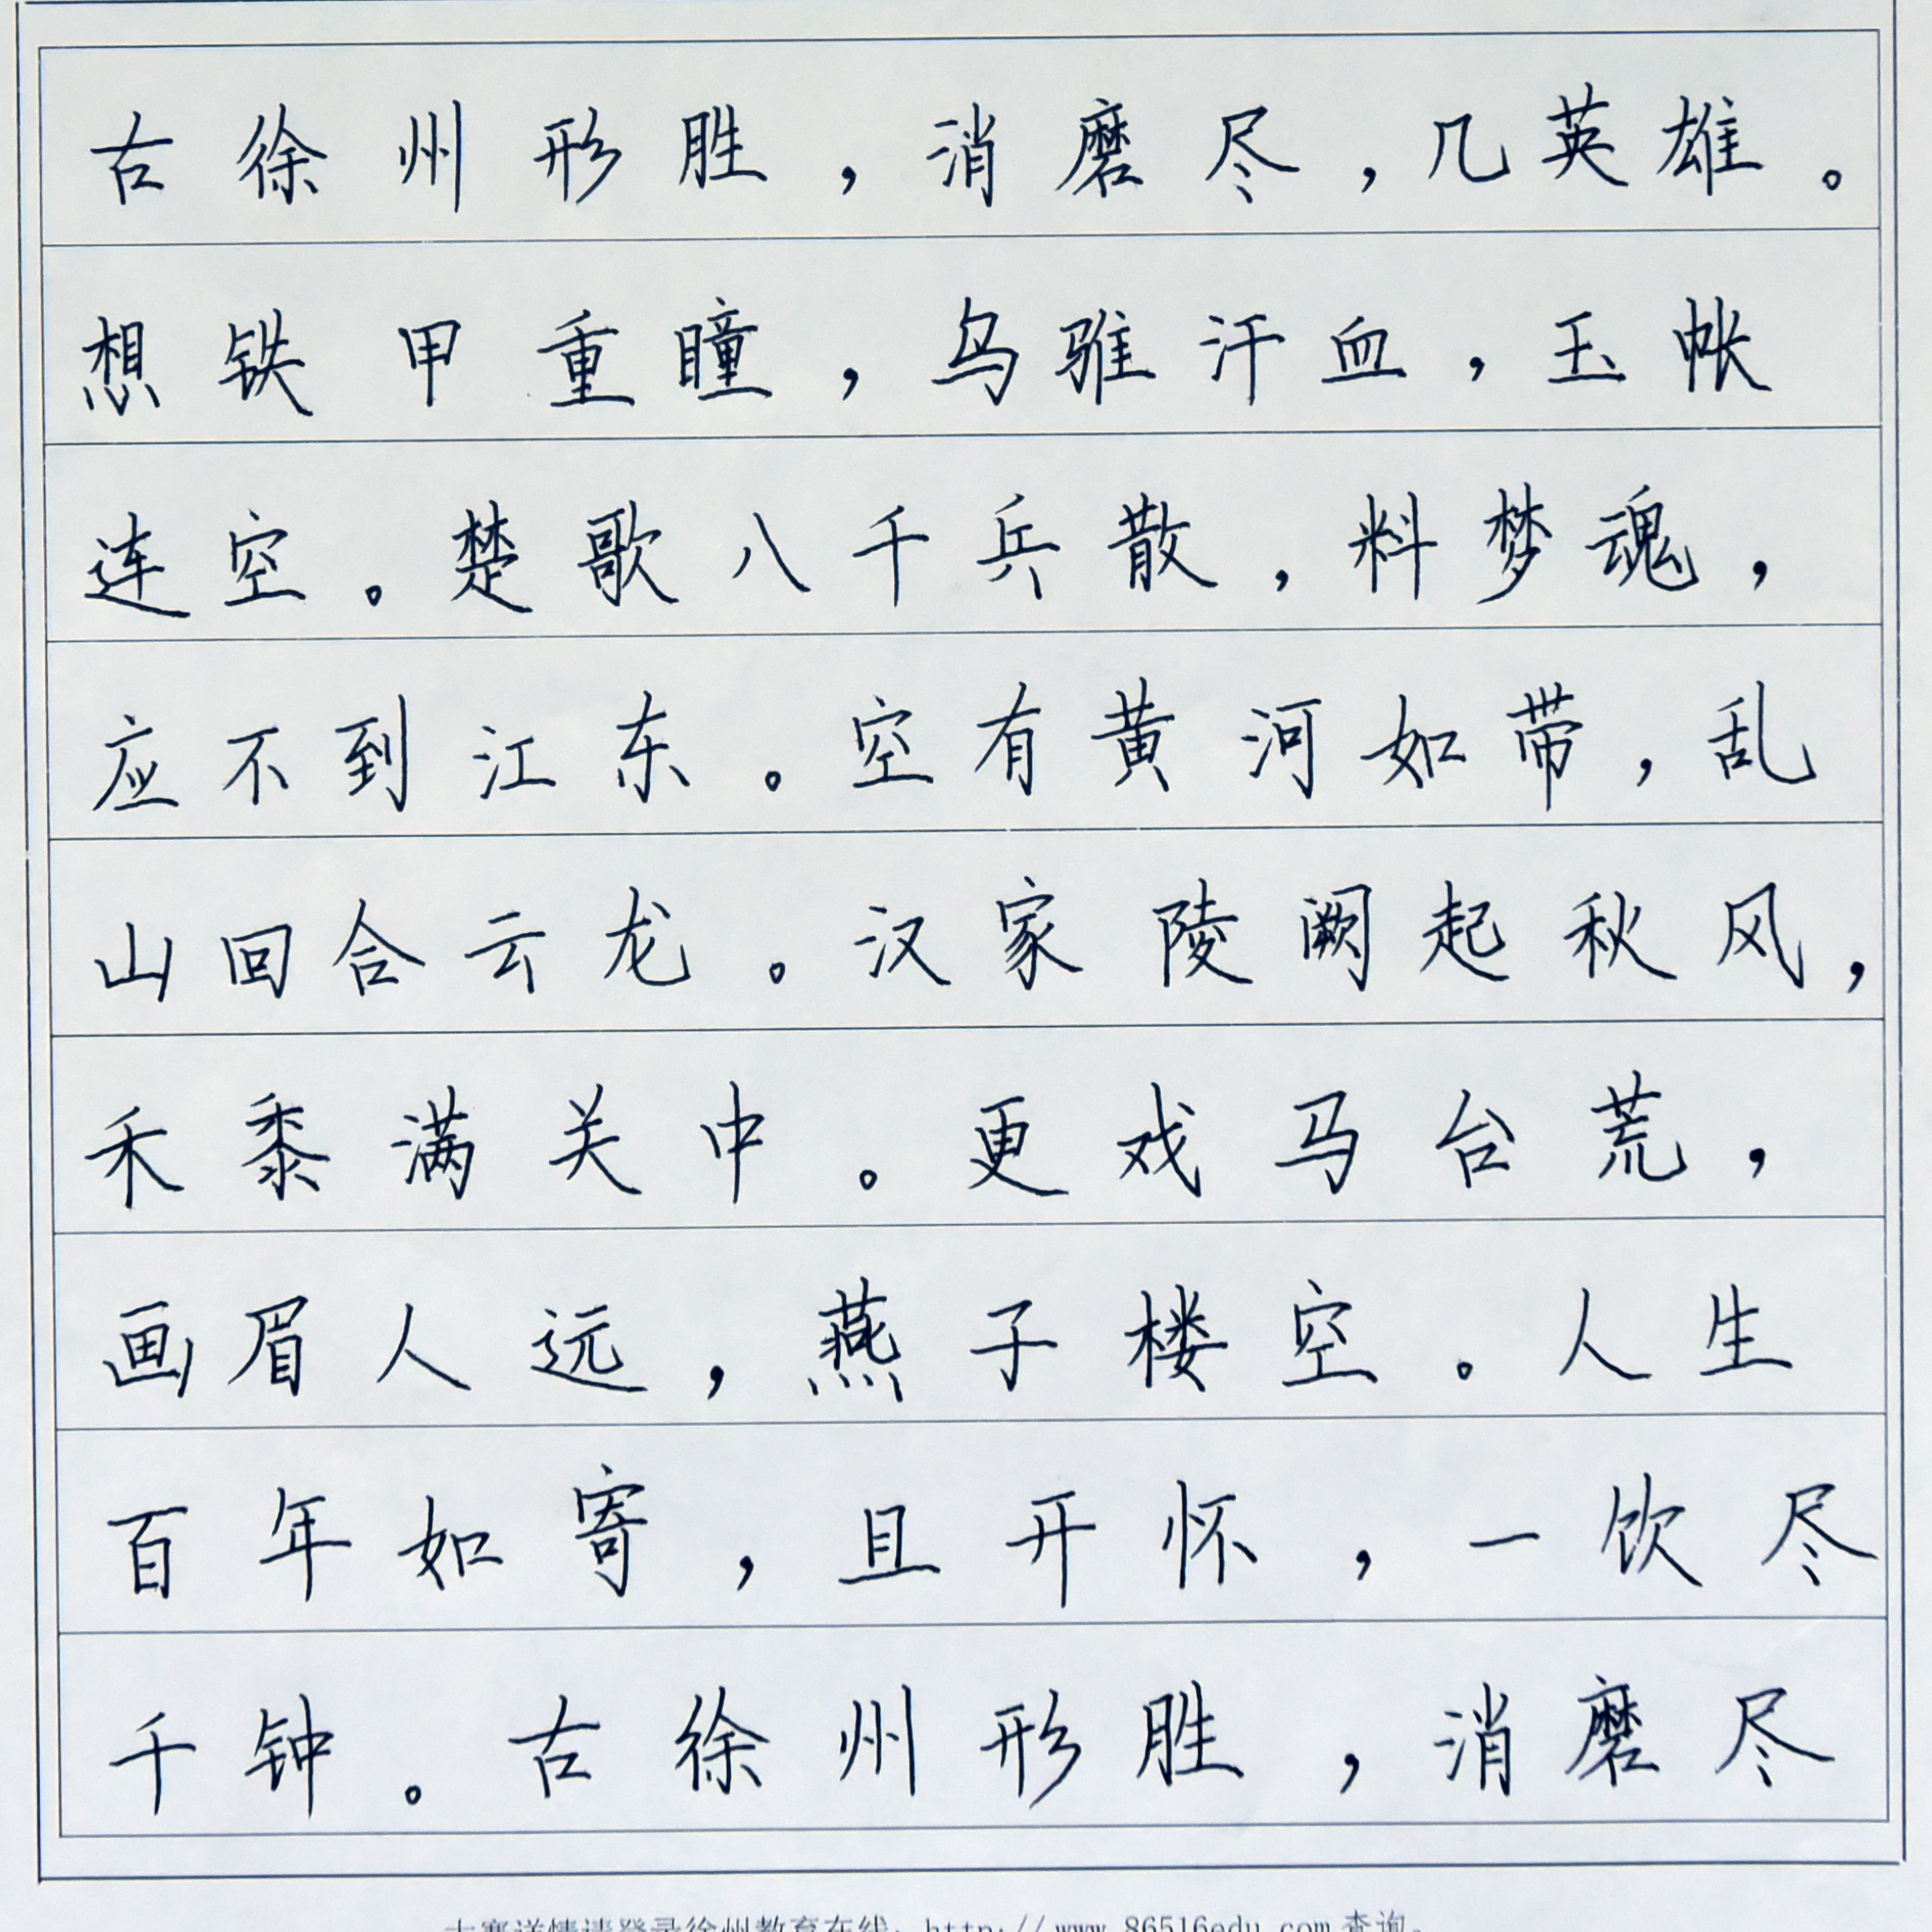 古徐州形胜，消磨尽，几英雄。
想铁甲重瞳，乌骓汗血，玉帐
连空。楚歌八千兵散，料梦魂，
应不到江东。空有黄河如带，乱
山回合云龙。汉家陵阙起秋风，
禾黍满关中。更戏马台荒，
画眉人远，燕子楼空。人生
百年如寄，且开怀，一饮尽
千钟。古徐州形胜，消磨尽
大赛详情请登录徐州教育在线：http://www.86516edu.com查询。